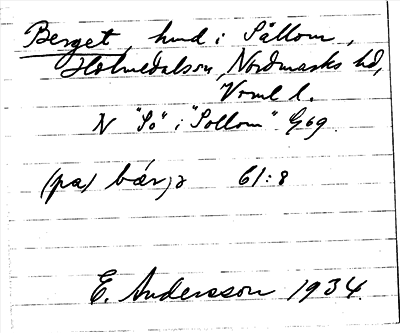 Berget, hmd i Sållom,
Holmedals sn, Nordmarks hd,
Vrml l.
N "So" i "Sollom" Gög.
(pa) bær,ə 61:8
E. Andersson 1934.